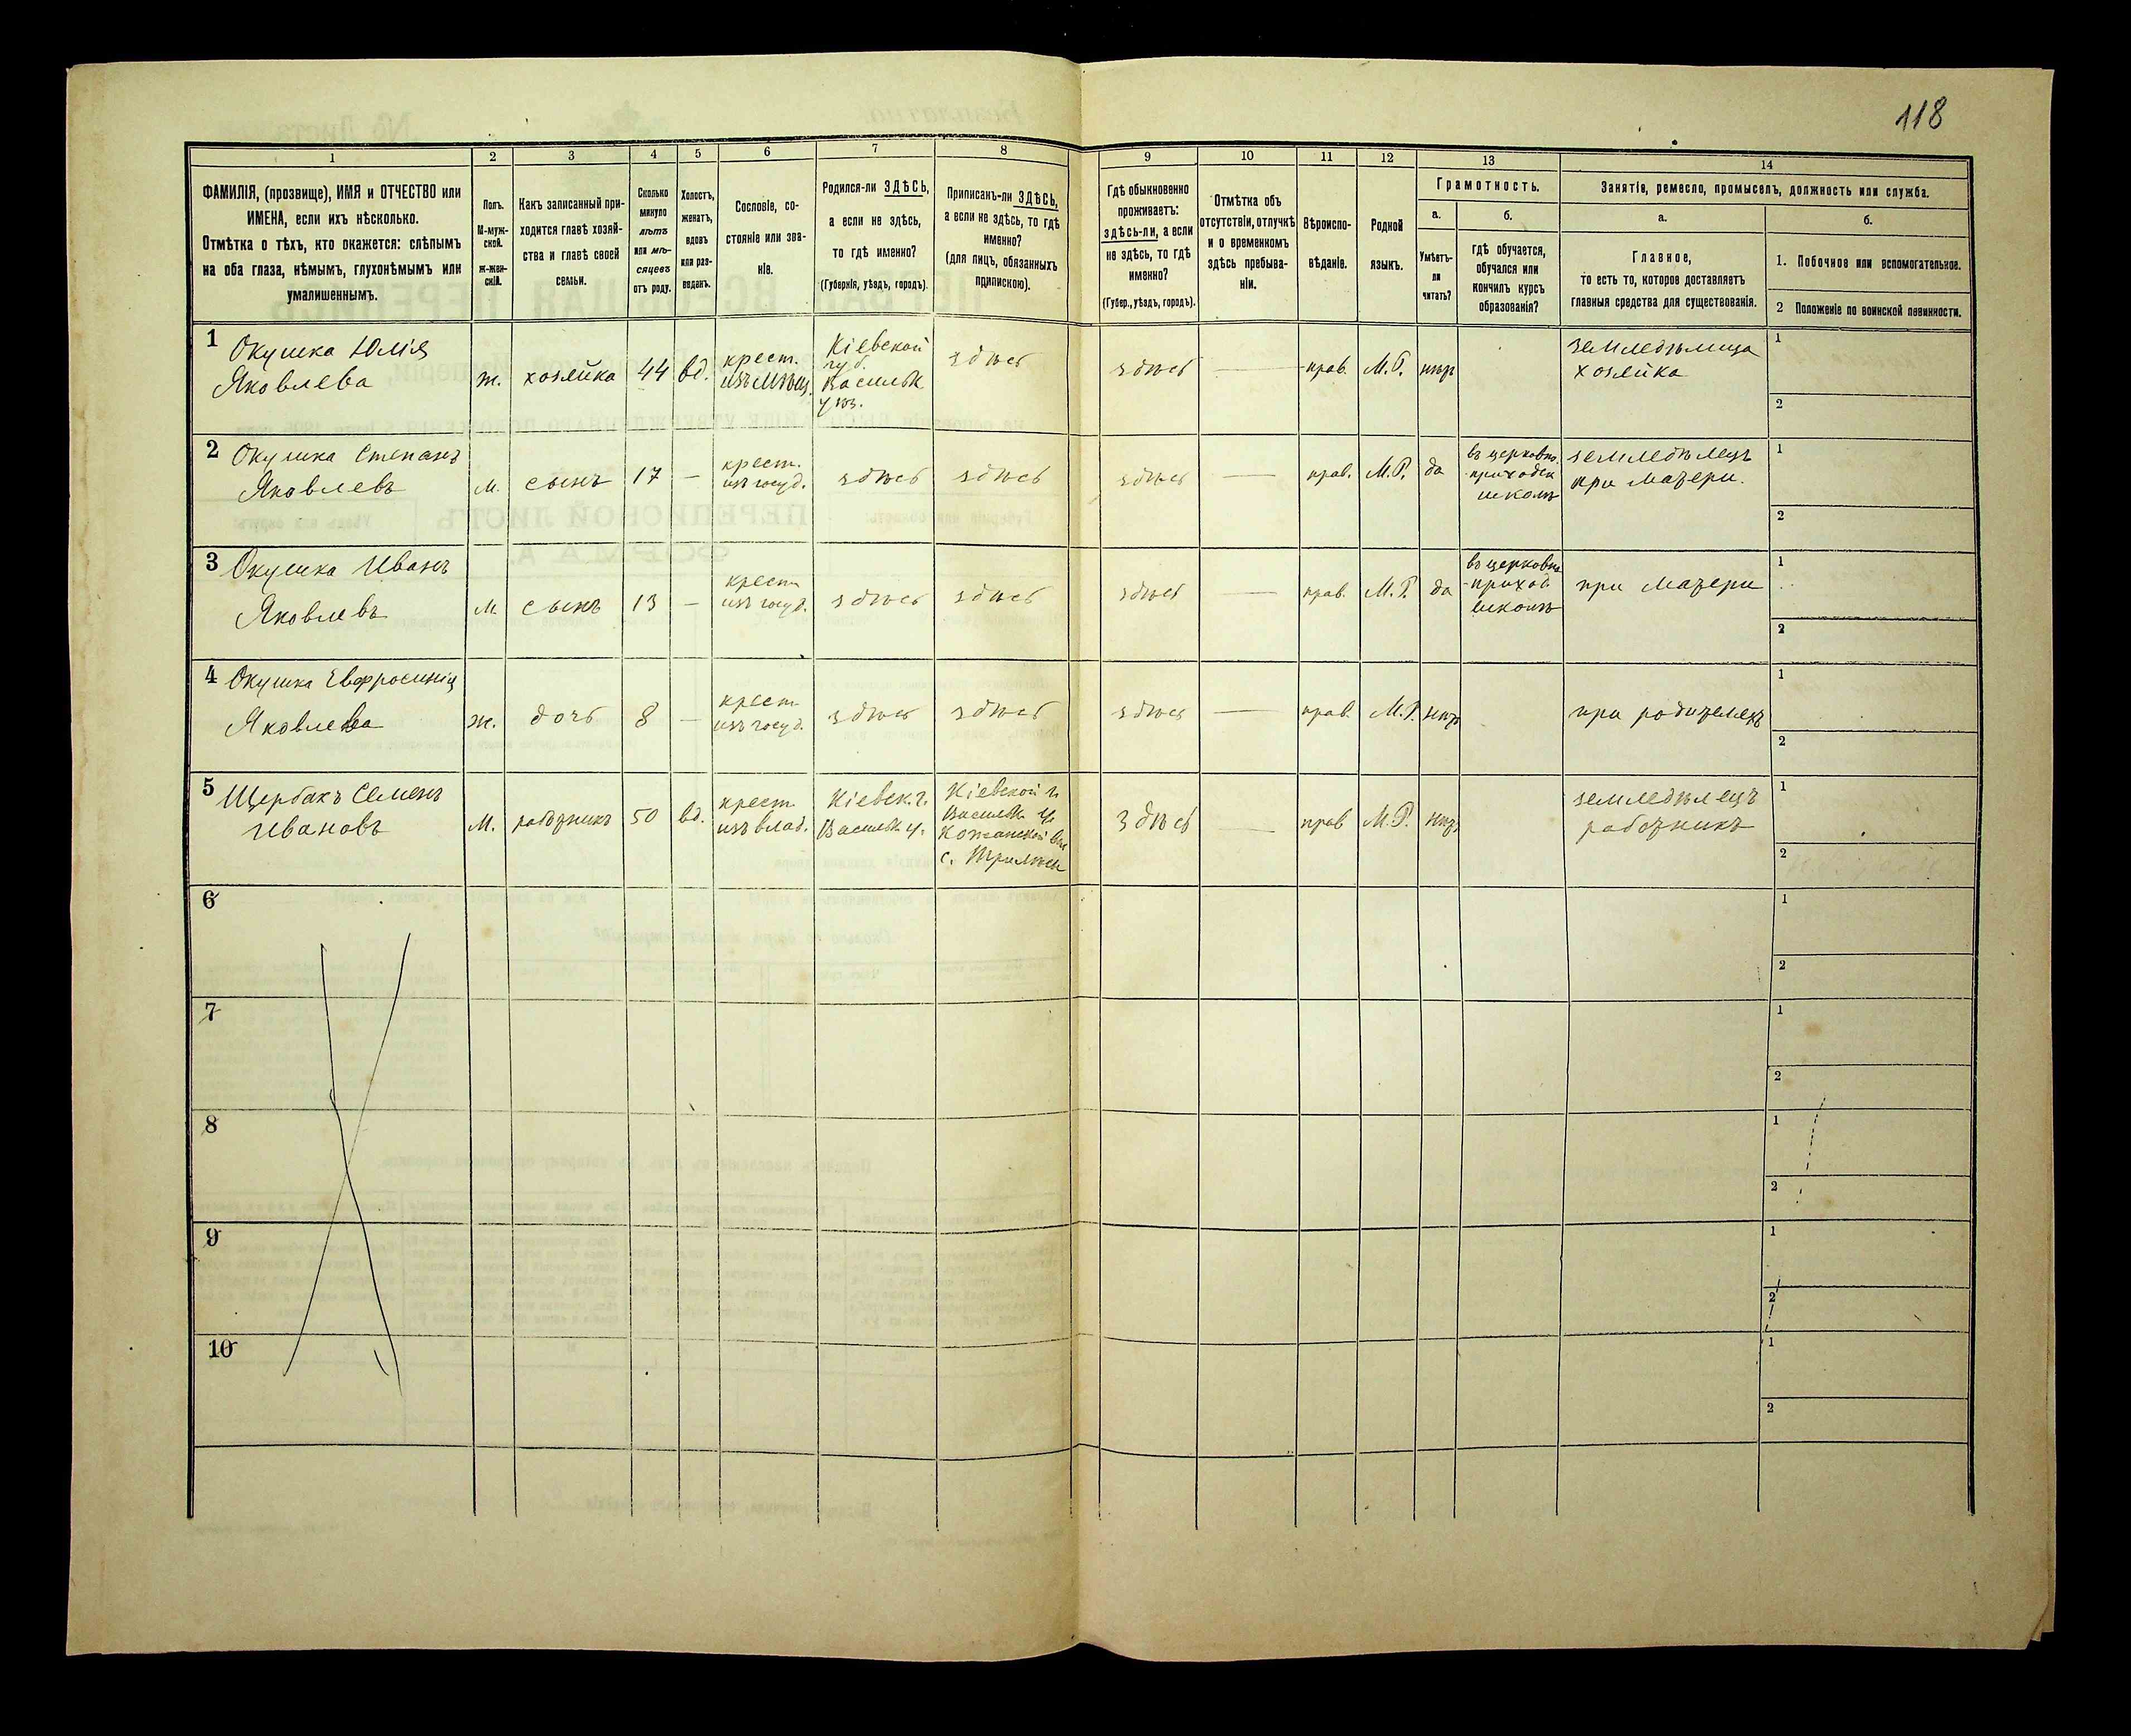 118
1
2
3
4
5
6
7
8
9
10
11
12
13
14
ФАМИЛІЯ, (прозвище), ИМЯ и ОТЧЕСТВО или
ИМЕНА, если ихъ нѣсколько.
Отмѣтка о тѣхъ, кто окажется: слѣпымъ
на оба глаза, нѣмымъ, глухонѣмымъ или
умалишеннымъ.
Полъ.
М-муж-
ской.
ж-жен-
скій.
Какъ записанный при-
ходится главѣ хозяй-
ства и главѣ своей
семьи.
Сколько
минуло
лѣтъ
или мѣ-
сяцевъ
отъ роду.
Холостъ,
женатъ,
вдовъ
или раз-
веденъ.
Сословіе, со-
стояніе или зва-
ніе.
Родился-ли ЗДѢСЬ,
а если не здѣсь,
то гдѣ именно?
(Губернія, уѣздъ, городъ).
Приписанъ-ли ЗДѢСЬ,
а если не здѣсь, то гдѣ
именно?
(для лицъ, обязанныхъ
припискою).
Гдѣ обыкновенно
проживаетъ:
здѣсь-ли, а если
не здѣсь, то гдѣ
именно?
(Губер., уѣздъ, городъ).
Отмѣтка объ
отсутствіи, отлучкѣ
и о временномъ
здѣсь пребыва-
ніи.
Вѣроиспо-
вѣданіе.
Родной
языкъ.
Грамотность.
а.
Умѣетъ-
ли
читать?
б.
гдѣ обучается,
обучался или
кончилъ курсъ
образованія?
Занятіе, ремесло, промыселъ, должность или служба.
а.
Главное,
то есть то, которое доставляетъ
главныя средства для существованія.
б.
1. Побочное или вспомогательное.
2 Положеніе по воинской повинности.
1
Окушка Юлія
Яковлева
ж.
хозяйка
44
вд.
крест.
Кіевской
губ.
Васильк
уѣз.
здѣсь
здѣсь
прав.
М.Р.
нѣт
земледѣлица
хозяйка
1
2
2
Окушка Степанъ
Яковлевъ
М.
сынъ
17
—
крест.
изъ госуд.
здѣсь
здѣсь
здѣсь
прав.
М.Р.
да
въ церковно.
приходск
школѣ
земледѣлецъ
при матери.
1
2
3
Окушка Иванъ
Яковлевъ
М.
сынъ
13
—
крест
изъ госуд.
здѣсь
здѣсь
здѣсь
прав.
М.Р.
да
въ церковно
-приход
школѣ
при матери
1
2
4
Окушка Евфросинія
Яковлева
ж.
дочь
8
—
крест
изъ госуд.
здѣсь
здѣсь
здѣсь
прав.
М.Р.
нѣт
при родителяхъ
1
2
5
Щербакъ Семенъ
Ивановъ
М.
работникъ
50
вд.
крест.
изъ влад.
Кіевск.г.
Васильк у.
Кіевской г.
Васильк у.
Кожанской вол
с.
здѣсь
прав
М.Р.
нѣт
земледѣлецъ
работникъ
1
2
6
1
2
7
1
2
8
1
2
9
1
2
10
1
2